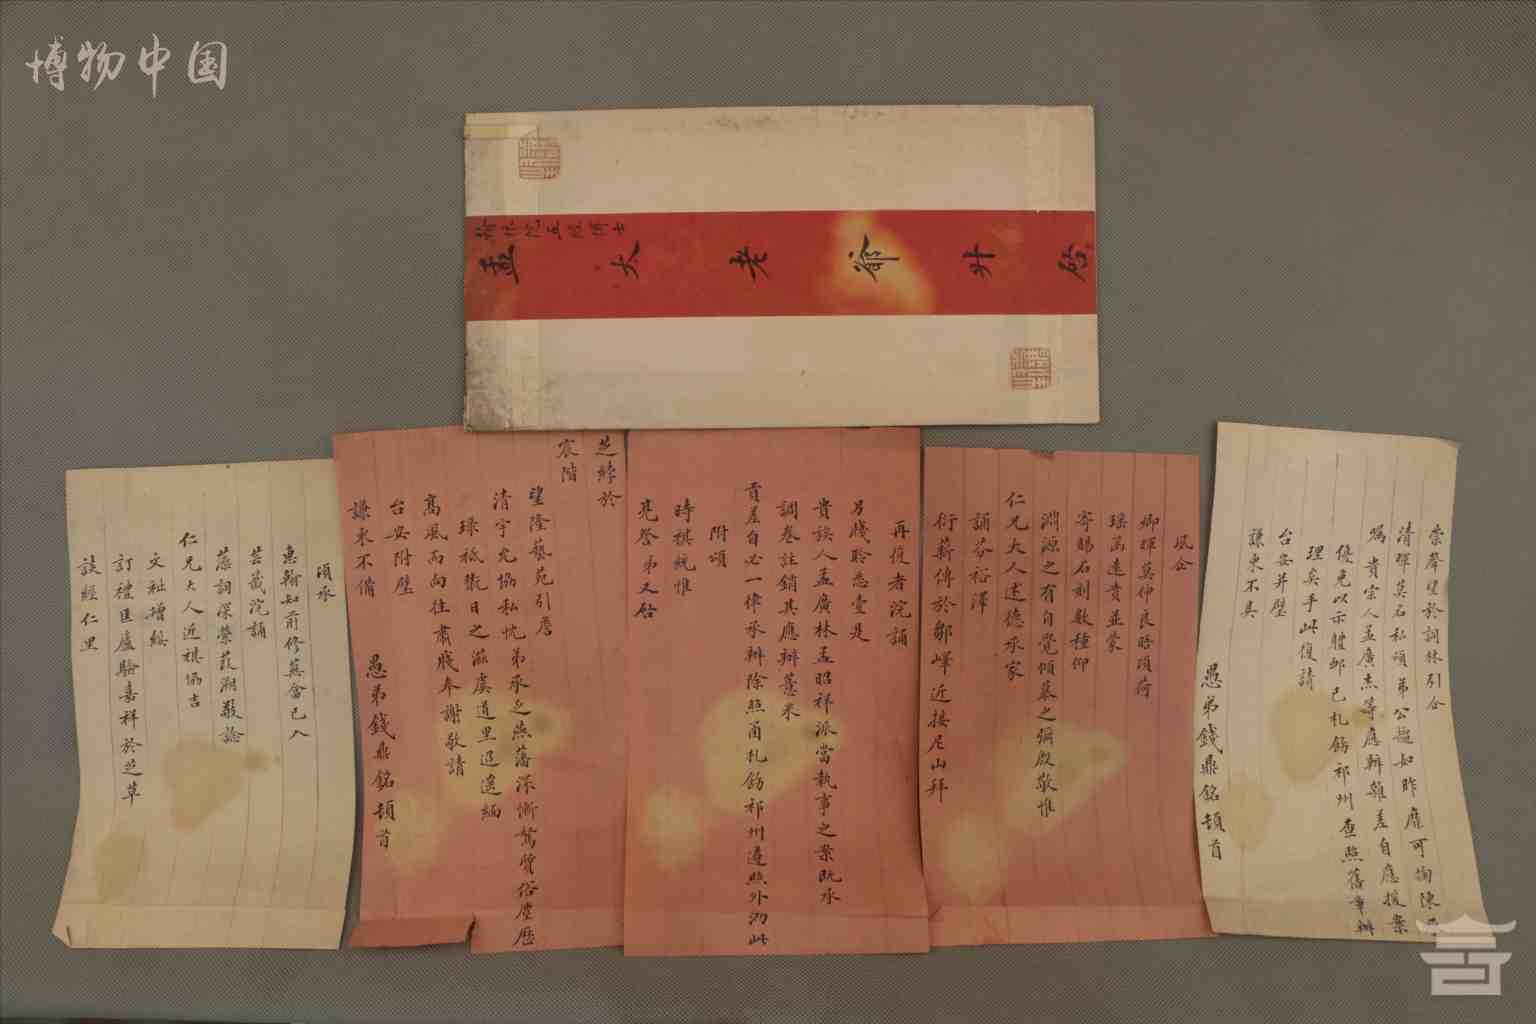 博物中国
翰林院五經博士
孟太老爺升啓
頃承
惠翰如前修蕪函已入
芸箴浣誦
藻詞深縈葭溯敬諗
仁兄大人近祺協吉
文祉增綏
訂禮匡廬驗嘉祥於芝草
談經仁里
崇聲望於詞林引企
清暉莫名私頌弟公趨如昨靡可掬陳
貴宗人孟廣杰等應辦雜差自應援案
優免以示體卹已札飭祁州查照舊章辦
理矣手此復請
台安并璧
謙柬不具
愚弟錢鼎銘頓首
風企
卿暉莫伸良晤頃荷
瑤函遠賁並蒙
寄賜石刻數種仰
淵源之有自覺傾慕之彌殷敬惟
仁兄大人述德承家
誦芬裕澤
衍薪傳於鄒嶧近接尼山拜
芝綍於
宸階
望隆藝苑引詹
清宇允協私忱弟承乏燕藩深慚駑質俗塵歷
琭祗蕲日之滋虞道里迢遙緬
高風而向往肅牋奉謝敬請
台安附璧
謙柬不備
愚弟錢鼎銘頓首
再復者浣誦
另牋聆悉壹是
貴族人孟廣林孟昭祥派當執事之案既承
調卷註銷其應辦薏米
貢差自必一律承辦除照函札飭祁州遵照外泐此
附頌
時祺統惟
亮詧弟又啓